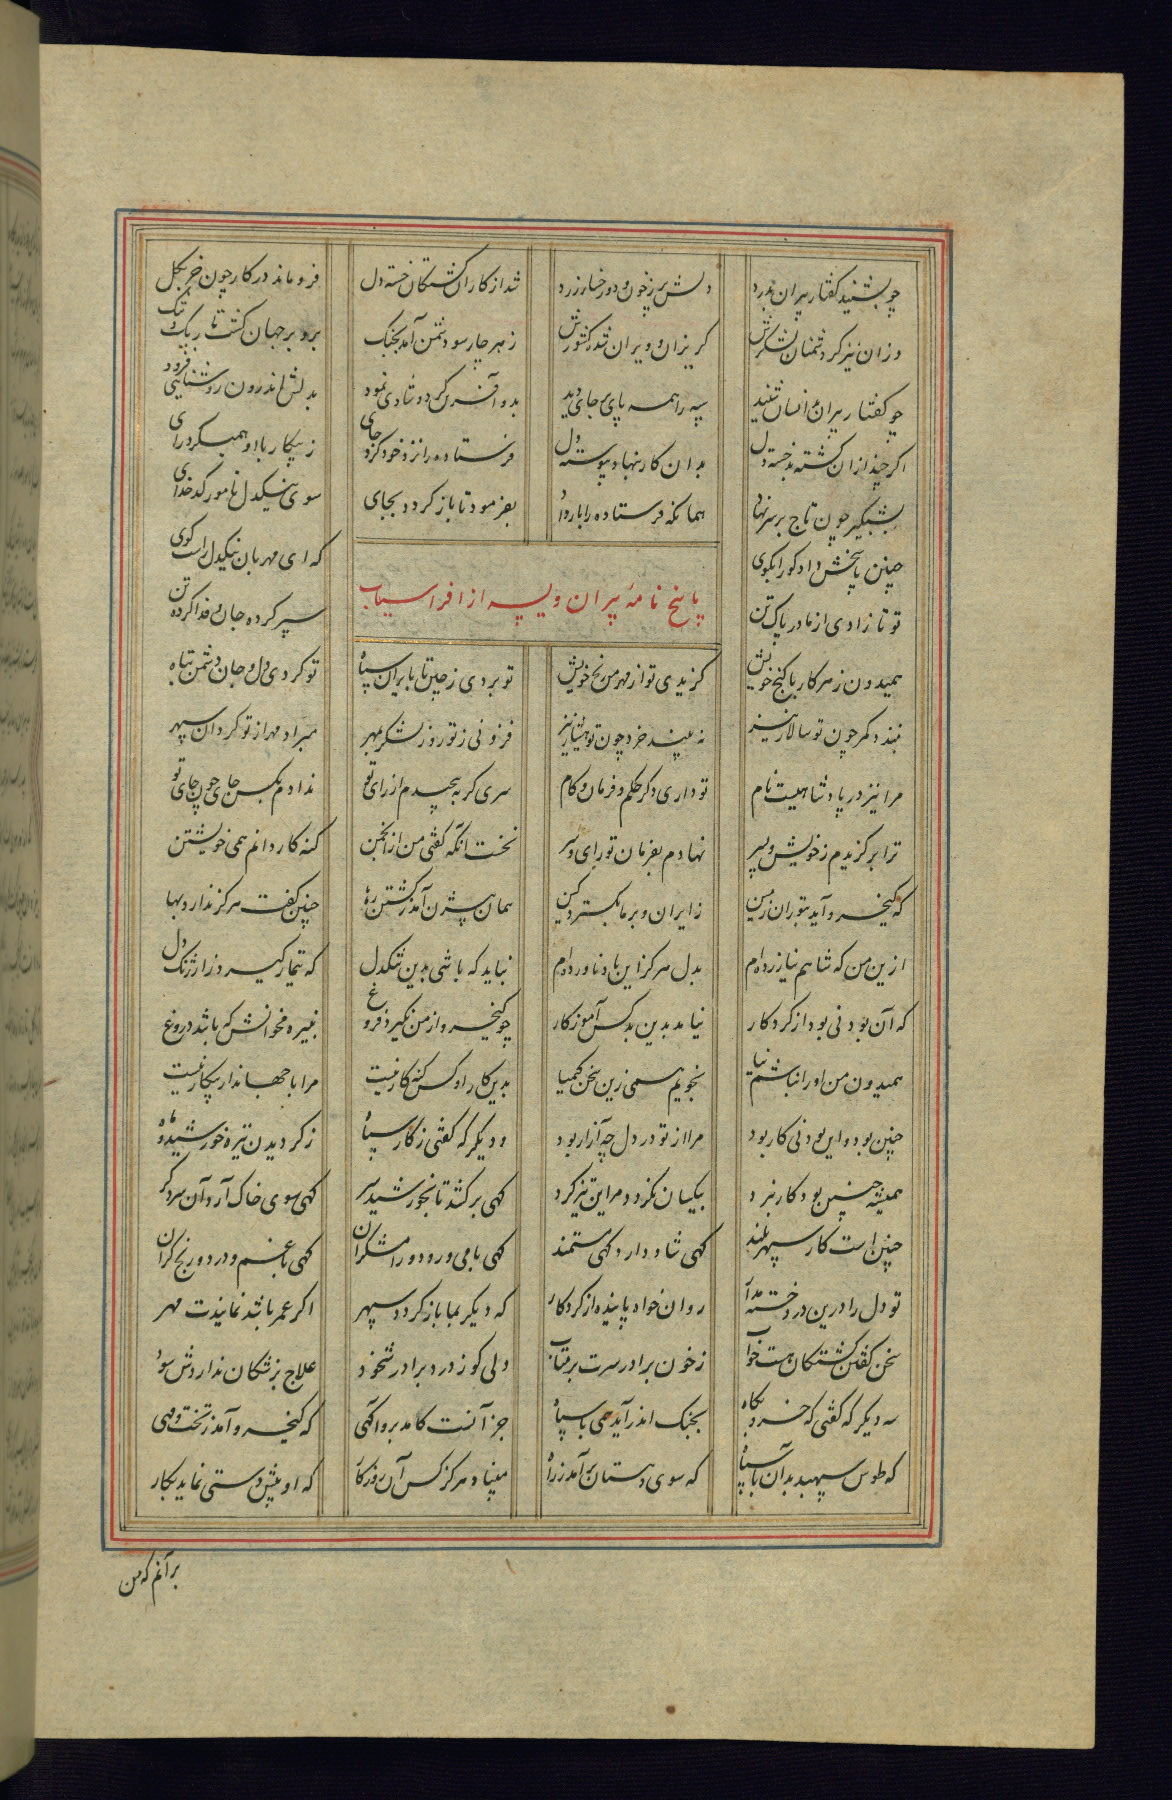 چو بشنید گفتار پیران بدرد دلش پر ز خون و دو رخسار زرد شد از کار آن کشتگان خسته دل فرو ماند در کار چون خر بگل
وزان نیز کز دشمنان لشکرش گریزان و ویران شده کشورش ز هر چار سو دشمن آمد بجنگ برو بر جهان گشت تاریک و تنگ
چو گفتار پیران بر انسان شنید سپه را همه پای بر جای دید بدو آفرین کرد و شادی نمود بدلش اندرون روشنایی فزود
اگر چند ازان کشته بد خسته دل بدان کار بنهاد پیوسته دل فرستاده را نزد خود کرد جای ز پیکار با او همیکرد رای
بشبگیر چون تاج بر سر نهاد همانگه فرستاده را بار داد بفرمود تا باز گردد بجای سوی نیکدل نامور کدخدای
چنین پاسخش داد کو را بگوی که ای مهربان نیکدل راست گوی
پاسخ نامهٔ پیران ویسه از افراسیاب
تو تا زادی از مادر پاک تن سپر کرده جان و فدا کرده تن
همیدون ز هر کار با گنج خویش گزیدی تو از مهر من رنج خویش تو بردی ز چین تا بایران سپاه تو کردی دل و جان دشمن تباه
نبندد کمر چون تو سالار نیز نه بیند خرد چون تو هشیار نیز فزونی ز تور و ز لشکر بمهر مبراد مهر از تو گردان سپهر
مرا نیز در پادشاهیت نام تو داری دگر حکم و فرمان و کام سری گر به پیچیدم از رای تو ندادم بکس جای چون جای تو
ترا برگزیدم ز خویش و پسر نهادم بفرمان تو رای و سر نخست آنکه گفتی من از انجمن گنه کار دانم همی خویشتن
که کیخسرو آید بتوران زمین ز ایران و بر ما بگسترد کین همان بیژن آمد ز کشتن رها چنین گفت هرگز ندارد بها
ازین من که شاهم نیازرده ام بدل هرگز این یاد ناورده ام نباید که باشی بدین تنگدل که تیمار گیرد ز ارژنگ دل
که آن بودنی بود از کردگار نیامد بدین بد کس آموزگار چو کیخسرو از من نگیرد فروغ نبیره مخوانش که باشد دروغ
همیدون من او را نباشم نیا نجویم همی زین سخن کیمیا بدین کار او کس گنه کار نیست مرا با جهاندار پیکار نیست
چنین بود و این بودنی کار بود مرا از تو در دل چه آزار بود و دیگر که گفتی ز کار سپاه ز گردیدن تیره خورشید و ماه
همیشه چنین بود کار نبرد بیکسان نگردد مر این تیز گرد گهی برکشد تا بخورشید سر گهی سوی خاک آرد آن
چنین است کار سپهر بلند گهی شاد دارد گهی مستمند گهی با می و رود و رامشگران گهی با غم و درد و رنج گران
تو دل را درین درد خسته مدار روان خواه پاینده از کردگار که دیگر بما باز گردد سپهر اگر عمر باشد نمایدت مهر
سخن گفتن کشتگان هست خواب ز خون برادر سرت بر متاب دلی کو ز درد برادر شخود علاج پزشکان نداردش سود
سه دیگر که گفتی که خسرو بگاه بجنگ اندر آید همی با سپاه جز آنست کامد برو آگهی که کیخسرو آمد ز تخت مهی
که طوس سپهبد بدان با سپاه که سوی دهستان برآمد ز راه مبیناد هرگز کس آن روزگار که او پیش دستی نماید بکار
بر آنم که من